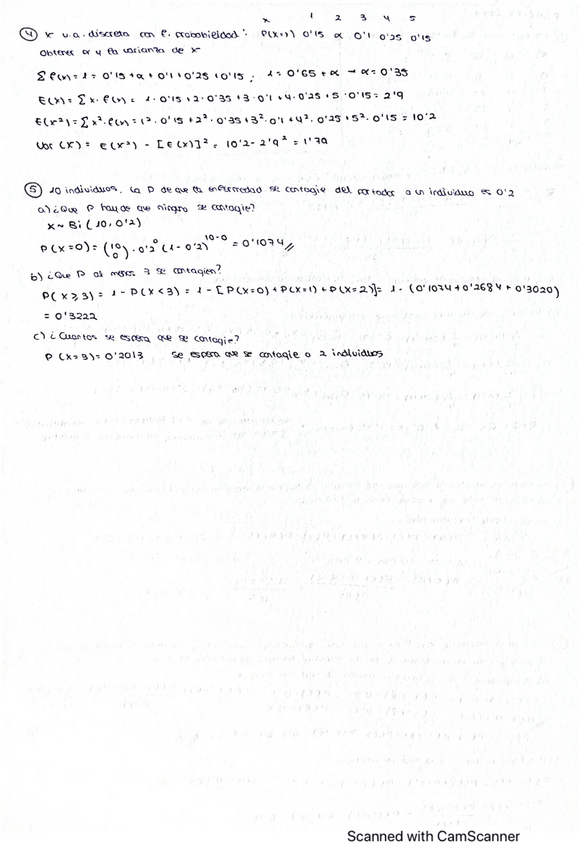 x 1 2 3 4 5
④ x v.a. discreta con f. probabilidad: P(X=x) 0'15 α 0'1 0'25 0'15
Obtener α y la varianza de x
∑ P(x) = 1 = 0'15 + α + 0'1 + 0'25 + 0'15 ; 1 = 0'65 + α → α = 0'35
E(x) = ∑ x · P(x) = 1 · 0'15 + 2 · 0'35 + 3 · 0'1 + 4 · 0'25 + 5 · 0'15 = 2'9
E(x²) = ∑ x² · P(x) = 1² · 0'15 + 2² · 0'35 + 3² · 0'1 + 4² · 0'25 + 5² · 0'15 = 10'2
Var (x) = E(x²) - [E(x)]² = 10'2 - 2'9² = 1'79
⑤ 10 individuos. La P de que la enfermedad se contagie del portador a un individuo es 0'2
a) ¿Que P hay de que ninguno se contagie?
x ~ Bi (10, 0'2)
P(x=0) = (10 0) · 0'2⁰ (1 - 0'2)¹⁰⁻⁰ = 0'1074 //
b) ¿Que P al menos 3 se contagien?
P(x ≥ 3) = 1 - P(x < 3) = 1 - [P(x=0) + P(x=1) + P(x=2)] = 1 - (0'1074 + 0'2684 + 0'3020)
= 0'3222
c) ¿Cuantos se espera que se contagie?
P(x=3) = 0'2013 Se espera que se contagie a 2 individuos
Scanned with CamScanner